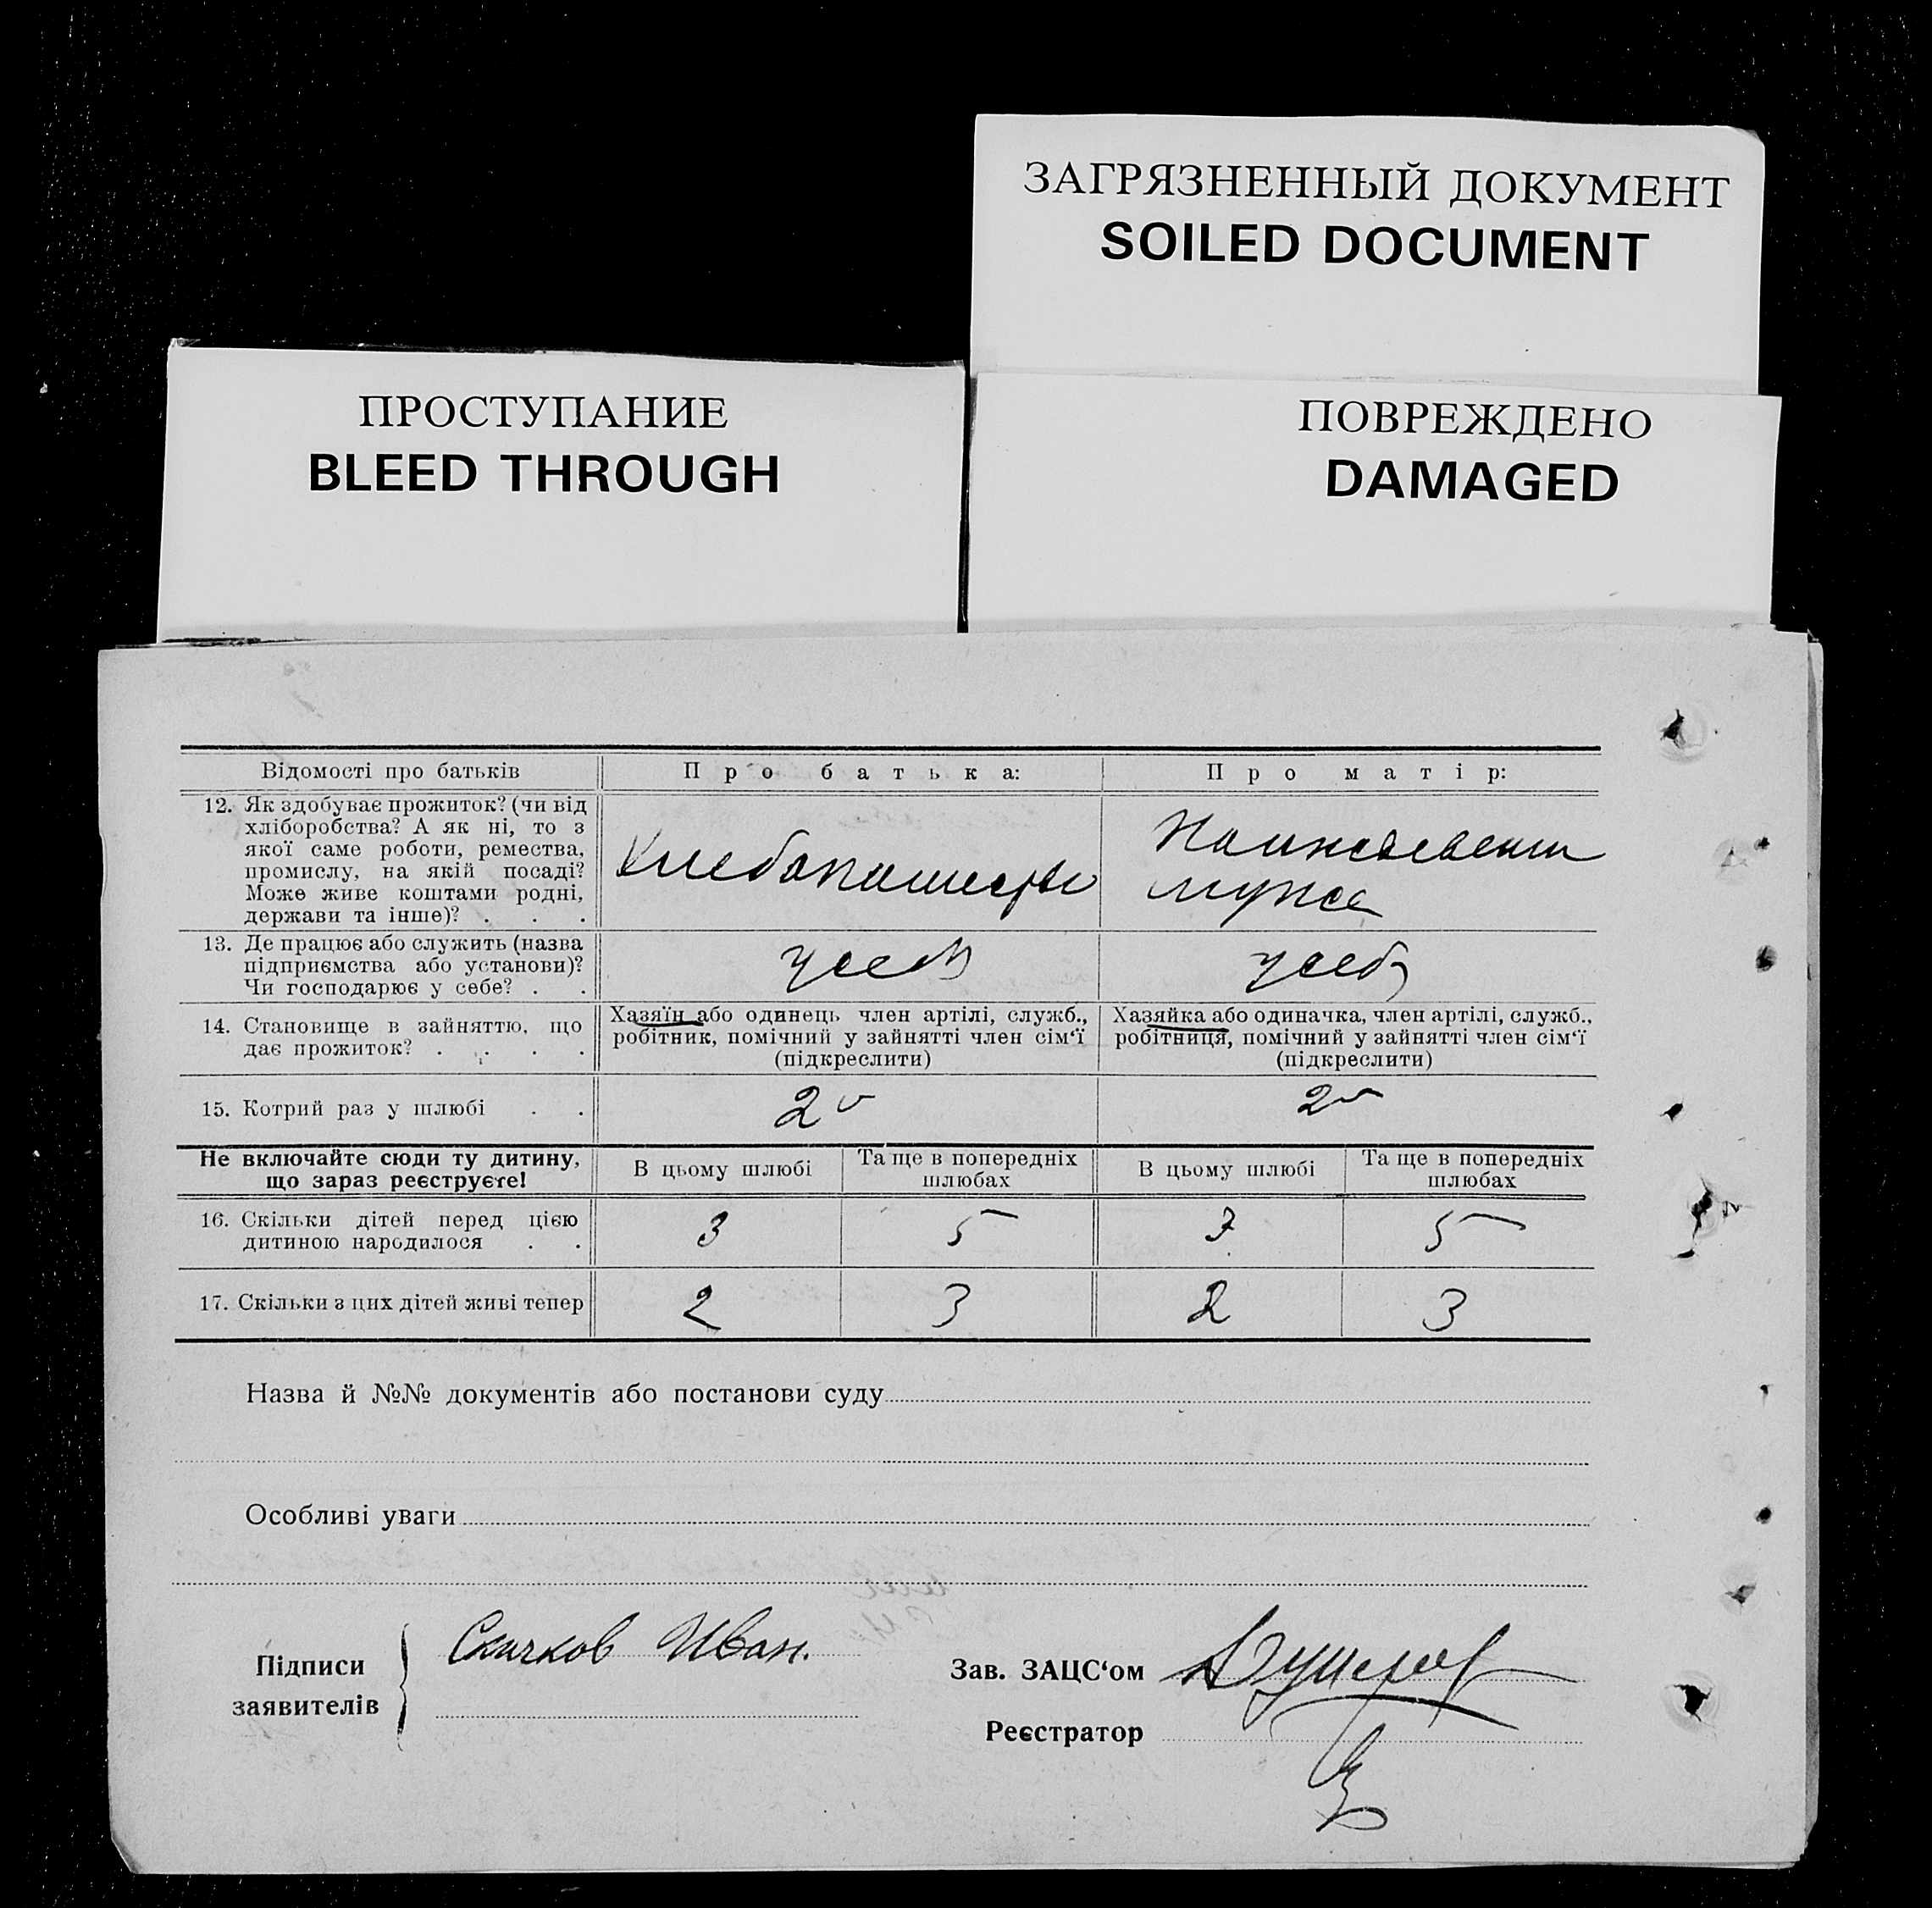 ЗАГРЯЗНЕННЫЙ ДОКУМЕНТ
SOILED DOCUMENT
ПРОСТУПАНИЕ
BLEED THROUGH
ПОВРЕЖДЕНО
DAMAGED
Відомості про батьків
Про батька:
Про матір:
12. Як здобуває прожиток? (чи від
хліборобства? А як ні, то з
якої саме роботи, ремества,
промислу, на якій посаді?
Може живе коштами родні,
держави та інше)? . . .
мужа
13. Де працює або служить (назва
підприємства або установи)?
Чи господарює у себе? . .
у себ
у себ
14. Становище в зайняттю, що
дає прожиток? . . . .
Хазяїн або одинець член артілі, служб.,
робітник, помічний у зайнятті член сім‘ї
(підкреслити)
Хазяйка або одиначка, член артілі, служб.,
робітниця, помічний у зайнятті член сім‘ї
(підкреслити)
15. Котрий раз у шлюбі . .
2
2
Не включайте сюди ту дитину,
що зараз реєструєте!
В цьому шлюбі
Та ще в попередніх
шлюбах
В цьому шлюбі
Та ще в попередніх
шлюбах
16. Скільки дітей перед цією
дитиною народилося . .
3
5
3
5
17. Скільки з цих дітей живі тепер
2
3
2
3
Назва й №№ документів або постанови суду
Особливі уваги
Підписи
заявителів
Скачков Иван.
Зав. ЗАЦС‘ом
Реєстратор